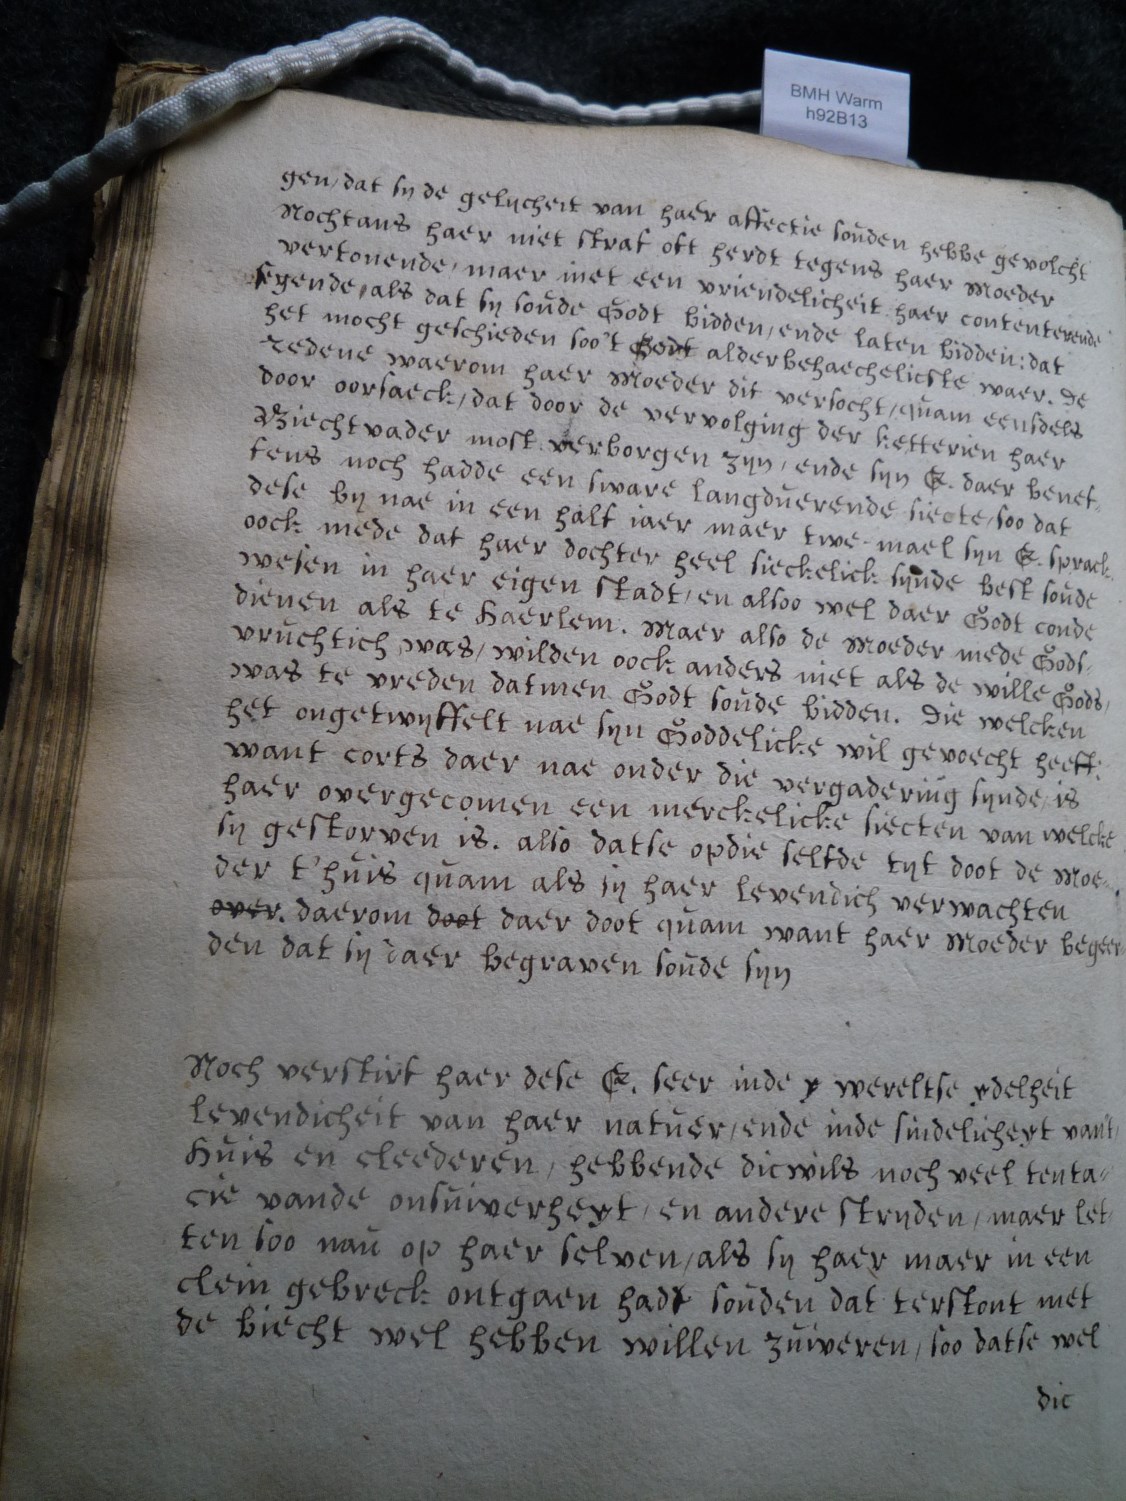 BMH Warm
h92B13
gen, dat sy de gelijcheit van haer affectie souden hebbe gevolcht
Nochtans haer niet straf oft herdt tegens haer Moeder
vertonende, maer met een vriendelicheit haer contenterende
segende, als dat sy soude Godt bidden, ende laten bidden: dat
het mocht geschieden soo't Godt alderbehaechelicste waer. De
redene waerom haer Moeder dit versocht, quam eensdels
door oorsaeck, dat door de vervolging der ketterien haer
Biechtvader most verborgen zyn, ende syn E. daer benef-
fens noch hadde een sware langduerende siecte, soo dat
dese by nae in een half iaer maer twe-mael syn E. sprack,
oock mede dat haer dochter heel sieckelick synde best soude
wesen in haer eigen stadt, en alsoo wel daer Godt conde
dienen als te Haerlem. Maer also de Moeder mede Gods,
vruchtich was, wilden oock anders niet als de wille Gods,
was te vreden datmen Godt soude bidden. Die welcken
het ongetwyffelt nae syn Goddelicke wil gevoecht heeft,
want corts daer nae onder die vergadering synde, is
haer overgecomen een merckelicke siecten van welcke
sy gestorven is. also datse opdie selfde tyt doot de Moe-
der t'huis quam als sy haer levendich verwachten
over. daerom doot daer doot quam want haer Moeder begeer
den dat sy daer begraven soude syn
Noch verstirf haer dese E. seer inde y wereltse ydelheit
levendicheit van haer natuer, ende inde sindelicheyt vant,
Huis en cleederen, hebbende dicwils noch veel tenta-
cie vande onsuiverheyt, en andere stryden, maer let-
ten soo nau op haer selven, als sy haer maer in een
clein gebreck ontgaen hadt souden dat terstont met
de biecht wel hebben willen zuiveren, soo datse wel
dic